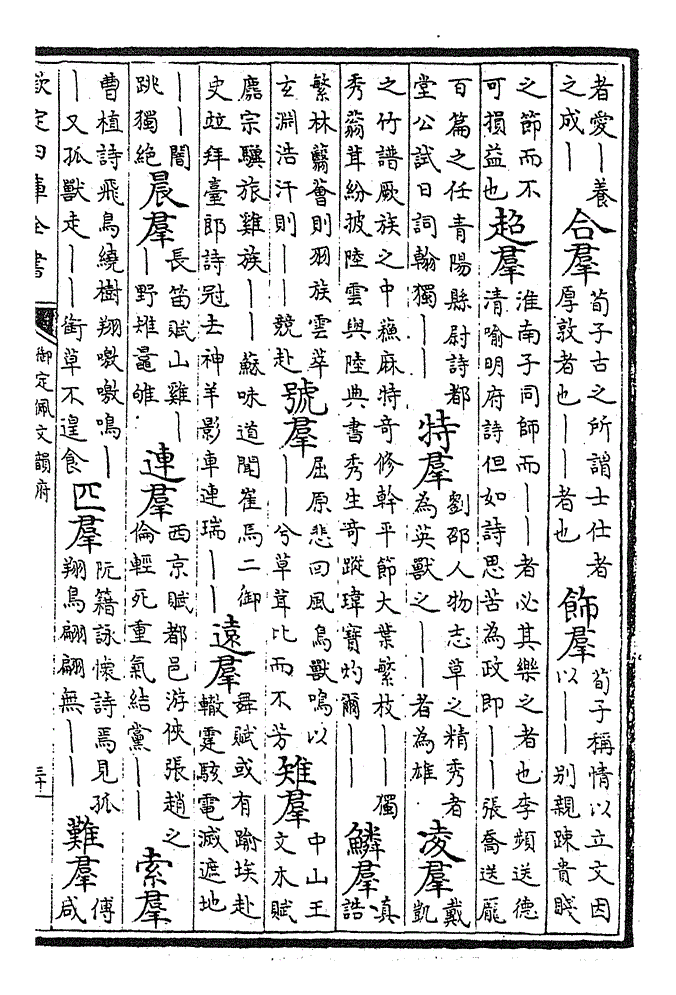 者愛｜養之成｜合羣荀子古之所謂士仕者厚敦者也｜｜者也飾羣荀子稱情以立文因以｜｜別親踈貴賤
之節而不可損益也超羣淮南子同師而｜｜者必其樂之者也李頻送德清喻明府詩但如詩思苦為政即｜｜張喬送龎
百篇之任青陽縣尉詩都堂公試日詞翰獨｜｜特羣劉邵人物志草之精秀者為英獸之｜｜者為雄凌羣戴凱
之竹譜厥族之中蘓麻特奇修幹平節大葉繁枝｜｜獨秀蓊茸紛披陸雲與陸典書秀生奇蹤瑋寶灼爾｜｜鱗羣滇誥
繁林蘙薈則羽族雲萃玄淵浩汗則｜｜競赴號羣屈原悲回風鳥獸鳴以｜｜兮草苴比而不芳雉羣中山王文木賦
麏宗驥旅雞族｜｜蘇味道聞崔馬二御史竝拜臺郎詩冠去神羊影車連瑞｜｜遠羣舞賦或有踰埃赴轍霆駭電滅遮地
｜｜闇跳獨絶晨羣長笛賦山雞｜｜野雉鼂雊連羣西京賦都邑游俠張趙之倫輕死重氣結黨｜｜索羣
曹植詩飛鳥繞樹翔噭噭鳴｜｜又孤獸走｜｜銜草不遑食匹羣阮籍詠懷詩焉見孤翔鳥翩翩無｜｜難羣傅咸
欽定四庫全書
御定佩文韻府